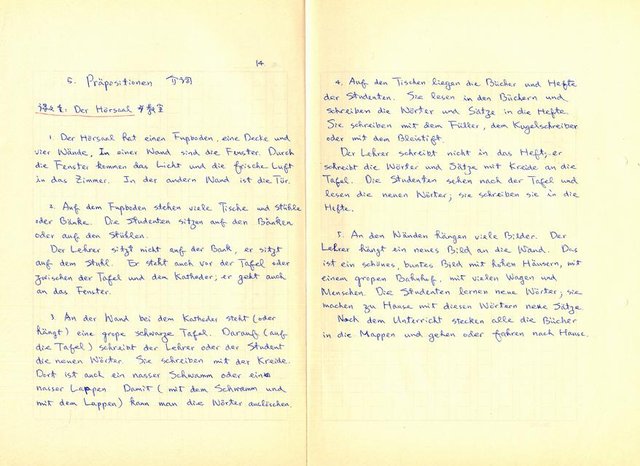 14
5. Präpositionen 介词
课文1: Der Hörsaal 大教室
1. Der Hörsaal hat einen Fußboden, eine Decke und
vier Wände. In einer Wand sind die Fenster. Durch
die Fenster kommen das Licht und die frische Luft
in das Zimmer. In der andern Wand ist die Tür.
2. Auf dem Fußboden stehen viele Tische und Stühle
oder Bänke. Die Studenten sitzen auf den Bänken
oder auf den Stühlen.
Der Lehrer sitzt nicht auf der Bank, er sitzt
auf dem Stuhl. Er steht auch vor der Tafel oder
zwischen der Tafel und dem Katheder; er geht auch
an das Fenster.
3. An der Wand bei dem Katheder steht (oder
hängt) eine große schwarze Tafel. Darauf (auf
die Tafel) schreibt der Lehrer oder der Student
die neuen Wörter. Sie schreiben mit der Kreide.
Dort ist auch ein nasser Schwamm oder ein
nasser Lappen. Damit (mit dem Schwamm und
mit dem Lappen) kann man die Wörter auslöschen.
4. Auf den Tischen liegen die Bücher und Hefte
der Studenten. Sie lesen in den Büchern und
schreiben die Wörter und Sätze in die Hefte.
Sie schreiben mit dem Füller, dem Kugelschreiber
oder mit dem Bleistift.
Der Lehrer schreibt nicht in das Heft, er
schreibt die Wörter und Sätze mit Kreide an die
Tafel. Die Studenten sehen nach der Tafel und
lesen die neuen Wörter; sie schreiben sie in die
Hefte.
5. An den Wänden hängen viele Bilder. Der
Lehrer hängt ein neues Bild an die Wand. Das
ist ein schönes buntes Bild mit hohen Häusern, mit
einem großen Bahnhof, mit vielen Wagen und
Menschen. Die Studenten lernen neue Wörter; sie
machen zu Hause mit diesen Wörtern neue Sätze.
Nach dem Unterricht stecken alle die Bücher
in die Mappen und gehen oder fahren nach Hause.